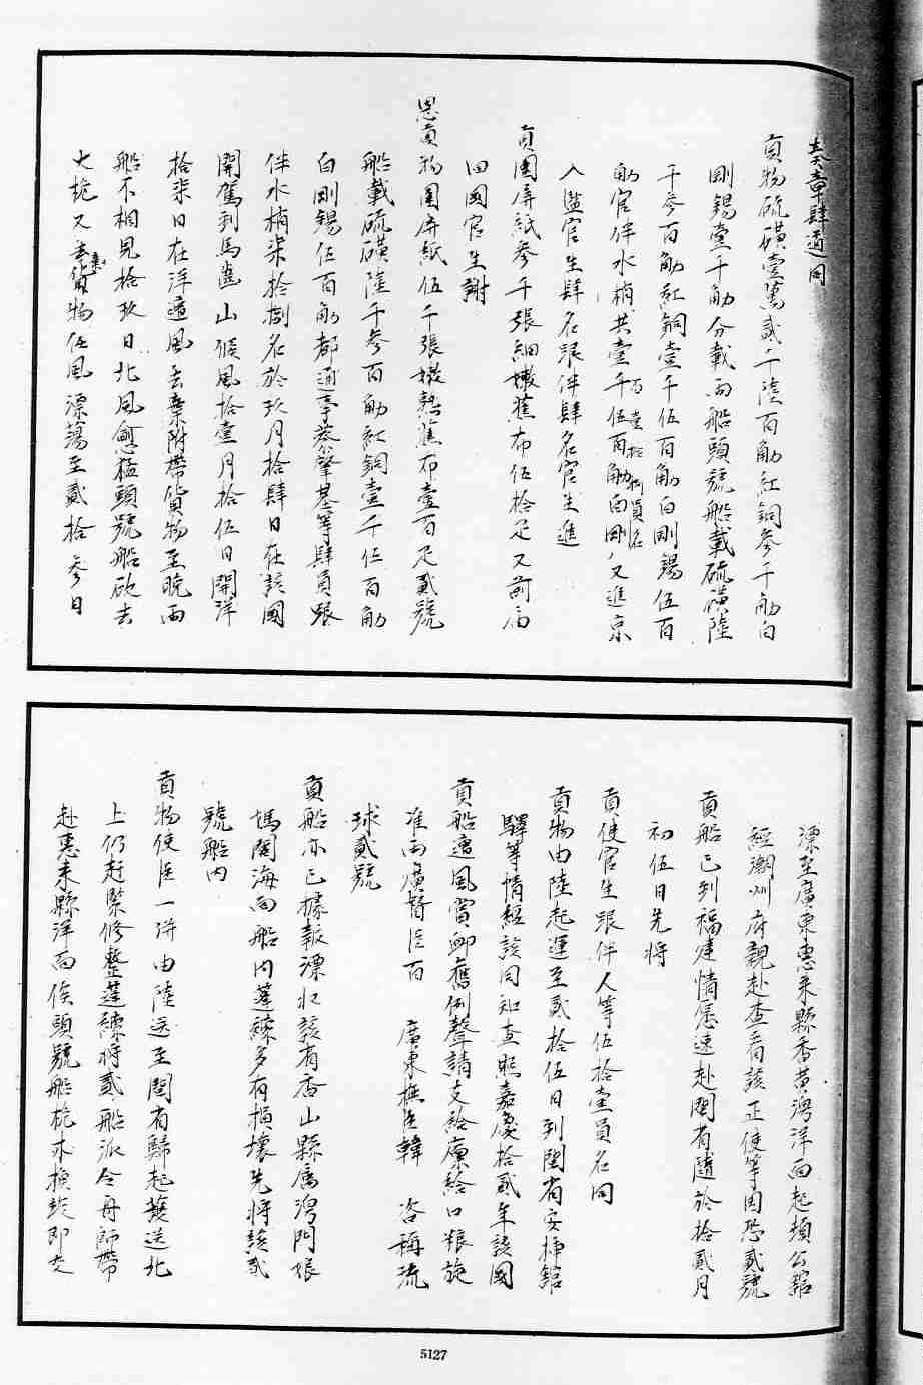 表章肆通同
貢物硫磺壹萬貳千陸百觔紅銅參千觔白
剛錫壹千觔分載兩船頭號船載硫磺陸
千參百觔紅銅壹千伍百觔白剛錫伍百
觔官伴水梢共壹百壹拾捌員名又進京
入監官生肆名跟伴肆名官生進
貢圍屏紙參千張細嫩蕉布伍拾疋又前屆
回國官生謝
恩貢物圍屏紙伍千張嫩熟蕉布壹百疋貳號
船載硫磺陸千參百觔紅銅壹千伍百觔
白剛錫伍百觔都通事蔡肇基等肆員跟
伴水梢柒拾捌名於玖月拾肆日在該國
開駕到馬齒山候風拾壹月拾伍日開洋
拾柒日在洋遭風丟棄附帶貨物至晚兩
船不相見拾玖日北風愈猛頭號船砍去
大桅又丟棄貨物任風漂蕩至貳拾參日
漂至廣東惠來縣香黃灣洋面起頓公館
經潮州府親赴查看該正使等因恐貳號
貢船已到福建情愿速赴閩省隨於拾貳月
初伍日先將
貢使官生跟伴人等伍拾壹員名同
貢物由陸起運至貳拾伍日到閩省安插館
驛等情經該同知查照嘉慶拾貳年該國
貢船遭風賞卹舊例聲請支給廩給口粮旋
准兩廣督臣百 廣東撫臣韓 咨稱琉
球貳號
貢船亦已據報漂收該省香山縣屬灣門娘
媽閣海面船內蓬繚多有損壞先將該貳
號船內
貢物使臣一併由陸送至閩省歸起護送北
上仍赶緊修整蓬繚將貳船派令舟師帶
赴惠來縣洋面俟頭號船桅木換竣即交
5127